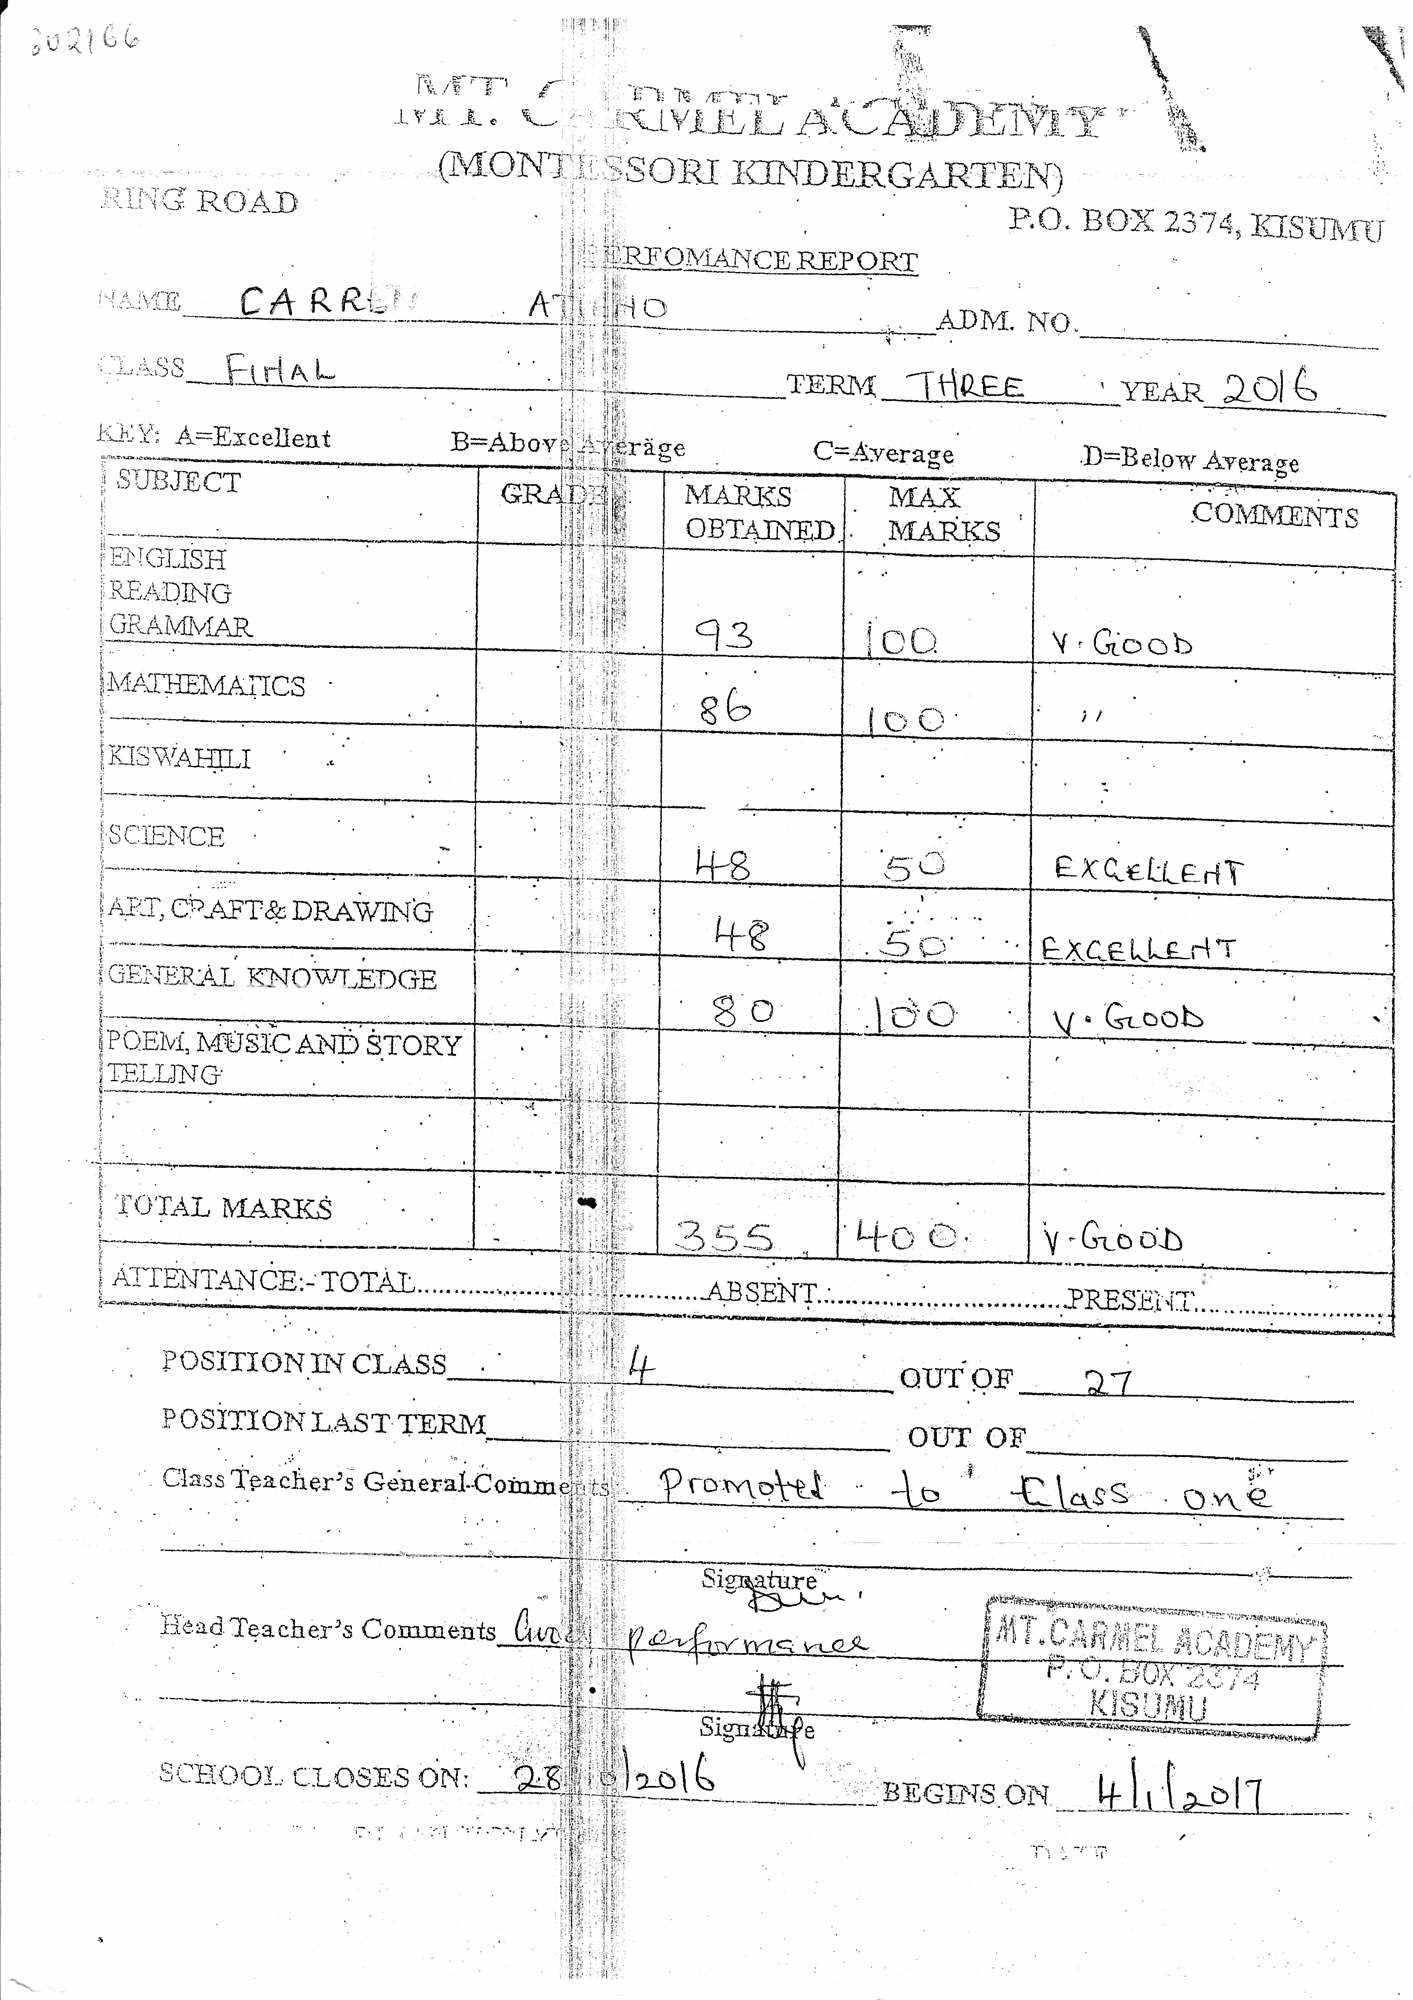 302166
MT. CARMEL ACADEMY
(MONTESSORI KINDERGARTEN)
RING ROAD
P.O. BOX 2374, KISUMU
PERFOMANCE REPORT
NAME CARREN ADM. NO.
CLASS FINAL TERM THREE YEAR 2016
KEY: A=Excellent B=Above Average C=Average D=Below Average
SUBJECT GRADE MARKS OBTAINED MAX MARKS COMMENTS
ENGLISH
READING
GRAMMAR 93 100 V. GOOD
MATHEMATICS 86 100 ,,
KISWAHILI
SCIENCE 48 50 EXCELLENT
ART, CRAFT & DRAWING 48 50 EXCELLENT
GENERAL KNOWLEDGE 80 100 V. GOOD
POEM, MUSIC AND STORY
TELLING
TOTAL MARKS 355 400 V. GOOD
ATTENTANCE:- TOTAL.............................ABSENT.............................PRESENT.............................
POSITION IN CLASS 4 OUT OF 27
POSITION LAST TERM OUT OF
Class Teacher's General Comments Promoted to Class one
Signature
Head Teacher's Comments Good performance
MT. CARMEL ACADEMY
P. O. BOX 2374
KISUMU
Signature
SCHOOL CLOSES ON: 28/10/2016 BEGINS ON 4/1/2017
DATE